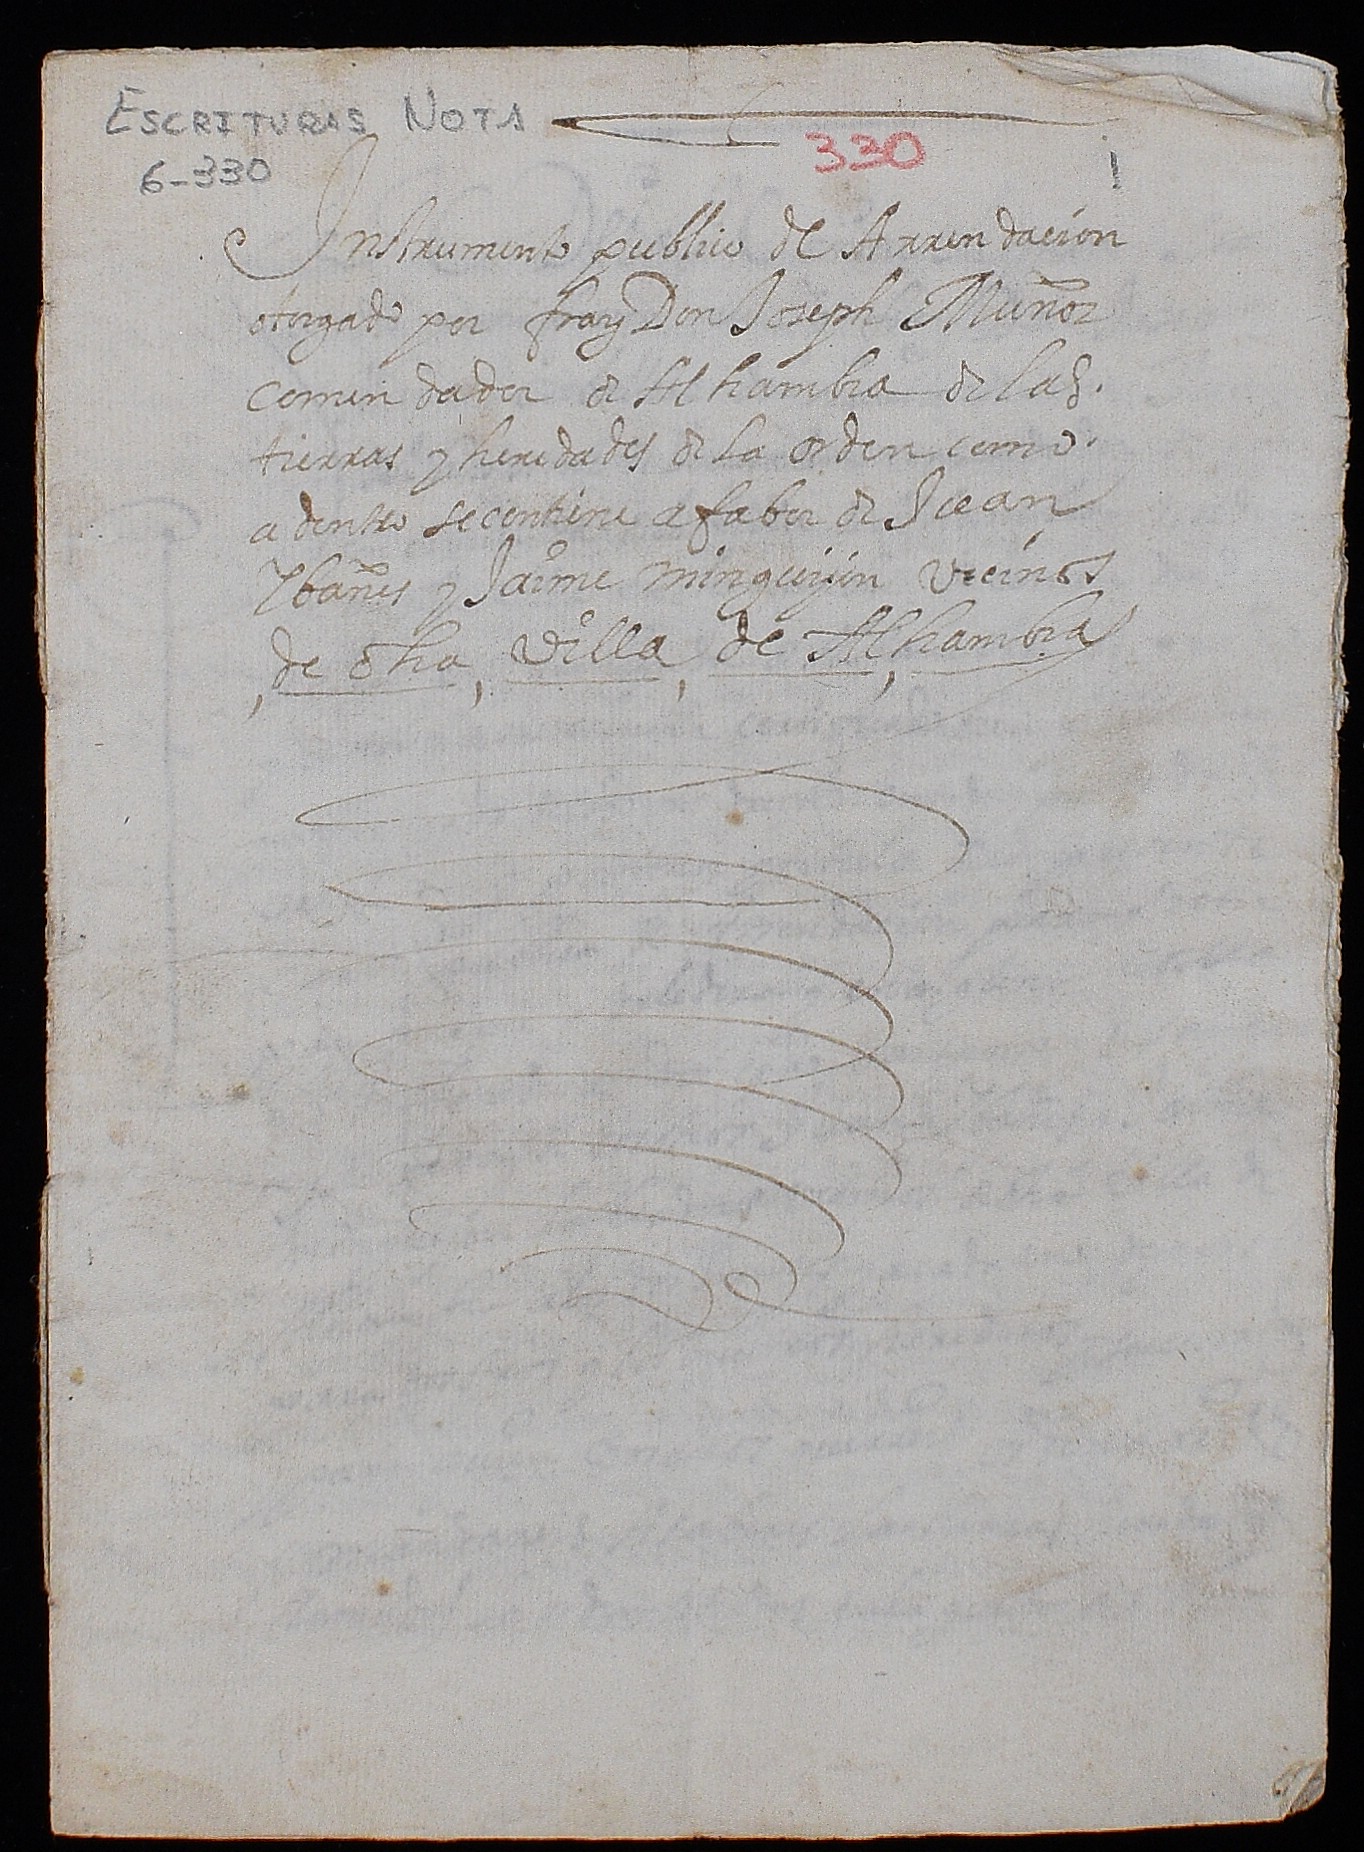 ESCRITURAS NOTA
330
1
6-330
Instrumento publico de Arrendacion
otorgado por fray Don Joseph Muñoz
comendador de Alhambra de las
tierras y heredades de la orden como
adentro se contiene a fabor de Juan
Ybañes y Jaime minguijon vecinos
de dha villa de Alhambra